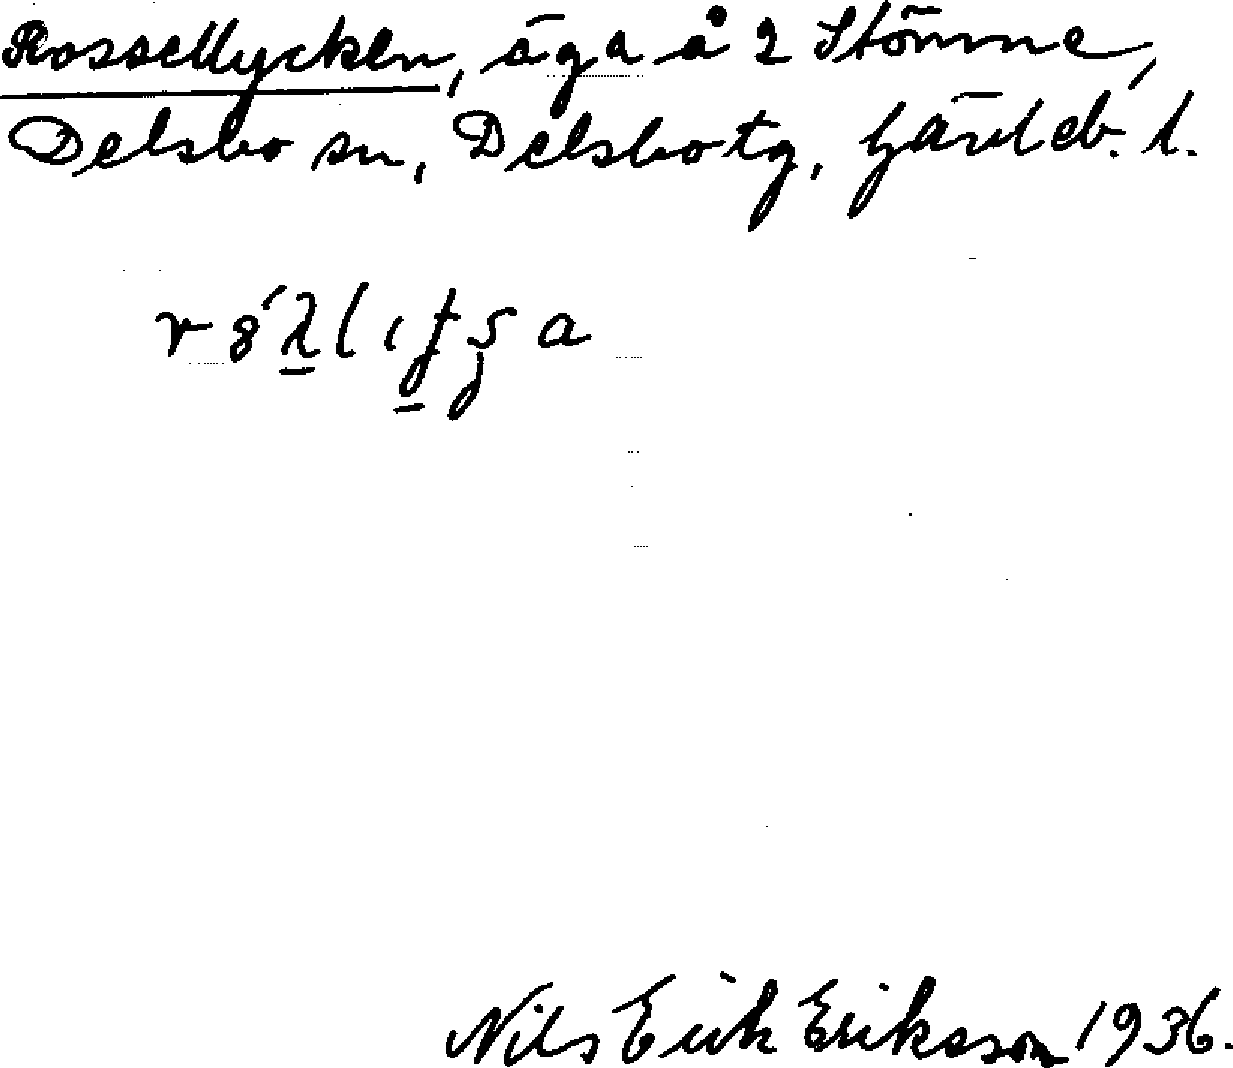 Rossellycken, äga å 2 Stömne,
Delsbo sn, Delsbo tg, Gävleb. l.
Nils Erik Eriksson 1936.